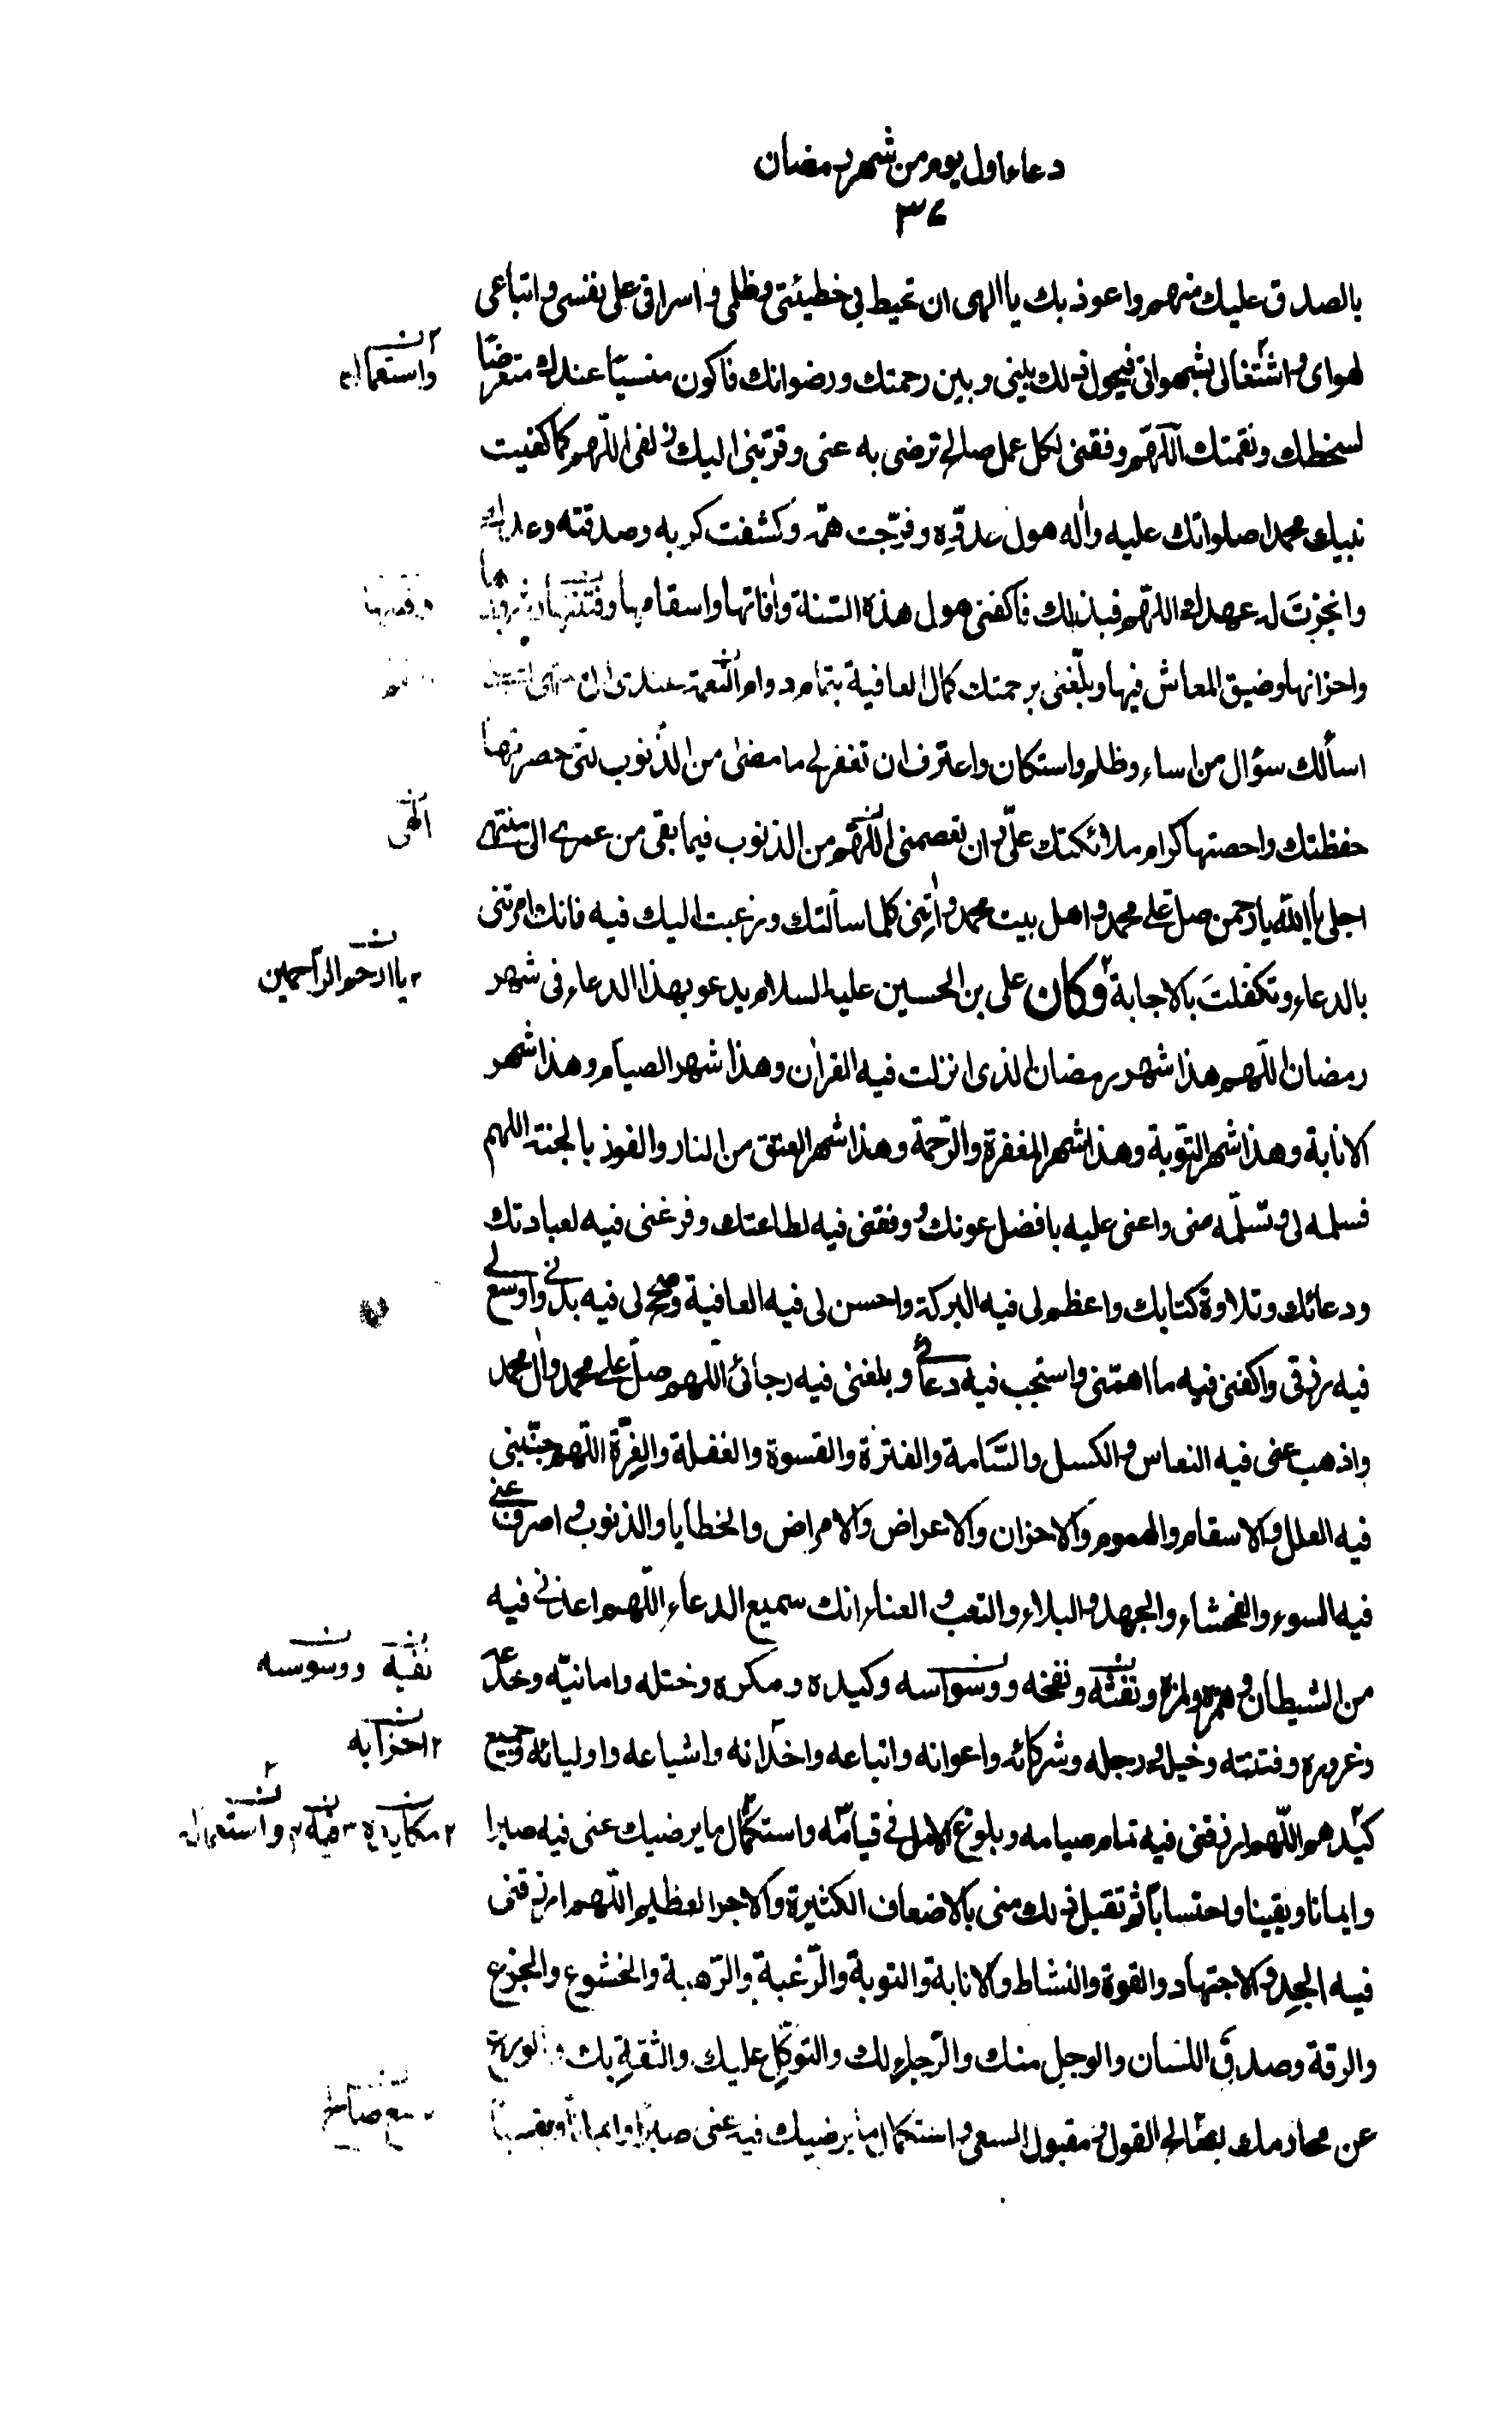 دعاء اول يوم من شهر رمضان
٣٧
بالصدق عليك منهم واعوذ بك يا الهى ان تحيط بى خطيئتى وظلمى واسرافى على نفسى واتباعى
لهواى واشتغالى بشهواتى فيحول ذلك بينى وبين رحمتك ورضوانك فاكون منسيّا عندك متعرضّا
واستعمال
لسخطك ونقمتك اللّهمّ وفقنى لكل عمل صالح ترضى به عنى وقرّبنى اليك زلفى اللّهم كما كفيت
نبيك محمدا صلواتك عليه واٰله هول عدوّه وفرّجت همّه وكشفت كربه وصدقته وعدك
وانجزتَ له عهدك اللّهم فبذلك فاكفنى هول هذه السّنة واٰفاتها واسقامها وفتنتها وشرورها
واحزانها وضيق المعاش فيها وبلّغنى برحمتك كمال العافية بتمام دوام النّعمة عندى الى منتهى
اسألك سؤال من اساء وظلم واستكان واعترف ان تغفر لى ما مضىٰ من الذّنوب التى حصرتها
حفظتك واحصتها كرام ملائكتك علىّ وان تعصمنى اللّهمّ من الذنوب فيما بقى من عمرى الى منتهى
الٰهى
اجلى يا اللّه يا رحمن صلّ على محمد واهل بيت محمد واٰتنى كلما سألتك ورغبت اليك فيه فانك امرتنى
بالدعاء وتكفلتَ بالاجابة ٢ وكان على بن الحسين عليه السلام يدعو بهذا الدعاء فى شهر
٢ يا ارحم الرّاحمين
رمضان اللّهم هذا شهر رمضان الذى انزلت فيه القراٰن وهذا شهر الصيام وهذا شهر
الانابة وهذا شهر التّوبة وهذا شهر المغفرة والرّحمة وهذا شهر العتق من النار والفوز بالجنة اللهم
فسلمه لى وتسلّمه منى واعنى عليه بافضل عونك ووفقنى فيه لطاعتك وفرغنى فيه لعبادتك
ودعائك وتلاوة كتابك واعظم لى فيه البركة واحسن لى فيه العافية وصحّ لى فيه بدنى واوسع لى
فيه رزقى واكفنى فيه ما اهمّنى واستجب فيه دعائى وبلغنى فيه رجائى اللّهم صلّ على محمد واٰل محمد
واذهب عنى فيه النعاس والكسل والسّامة والفترة والقسوة والغفلة والغِرّة اللّهم جنّبنى
فيه العلل والاسقام والهموم والاحزان والاعراض والامراض والخطايا والذنوب واصرف عنى
فيه السوء والفحشاء والجهد والبلاء والتعب والعناء انك سميع الدعاء اللّهم اعذنى فيه
من الشيطان وهمزه ولمزه ونفثه ونفخه ووسواسه وكيده ومكره وختله وامانيّه وخدعه
نفثه ووسوسه
وغروره وفتنته وخيله ورجله وشركائه واعوانه واتباعه واخدانه واشياعه واوليائه وجميع
٢ احزابه
كيدهم اللّهم ارزقنى فيه تمام صيامه وبلوغ الامل فى قيامه واستكمال ما يرضيك عنى فيه صبرا
٢ مكايده واستعمال
وايمانا ويقينا واحتسابا ثم تقبل ذلك منى بالاضعاف الكثيرة والاجر العظيم اللّهم ارزقنى
فيه الجد والاجتهاد والقوة والنشاط والانابة والتوبة والرّغبة والرّهبة والخشوع والجزع
والرقة وصدق اللسان والوجل منك والرّجاء لك والتوكّل عليك والثقة بك والورع
عن محارمك بصالح القول ومقبول السعى واستكمال ما يرضيك فيه عنى صبرا وايمانا ويقينا